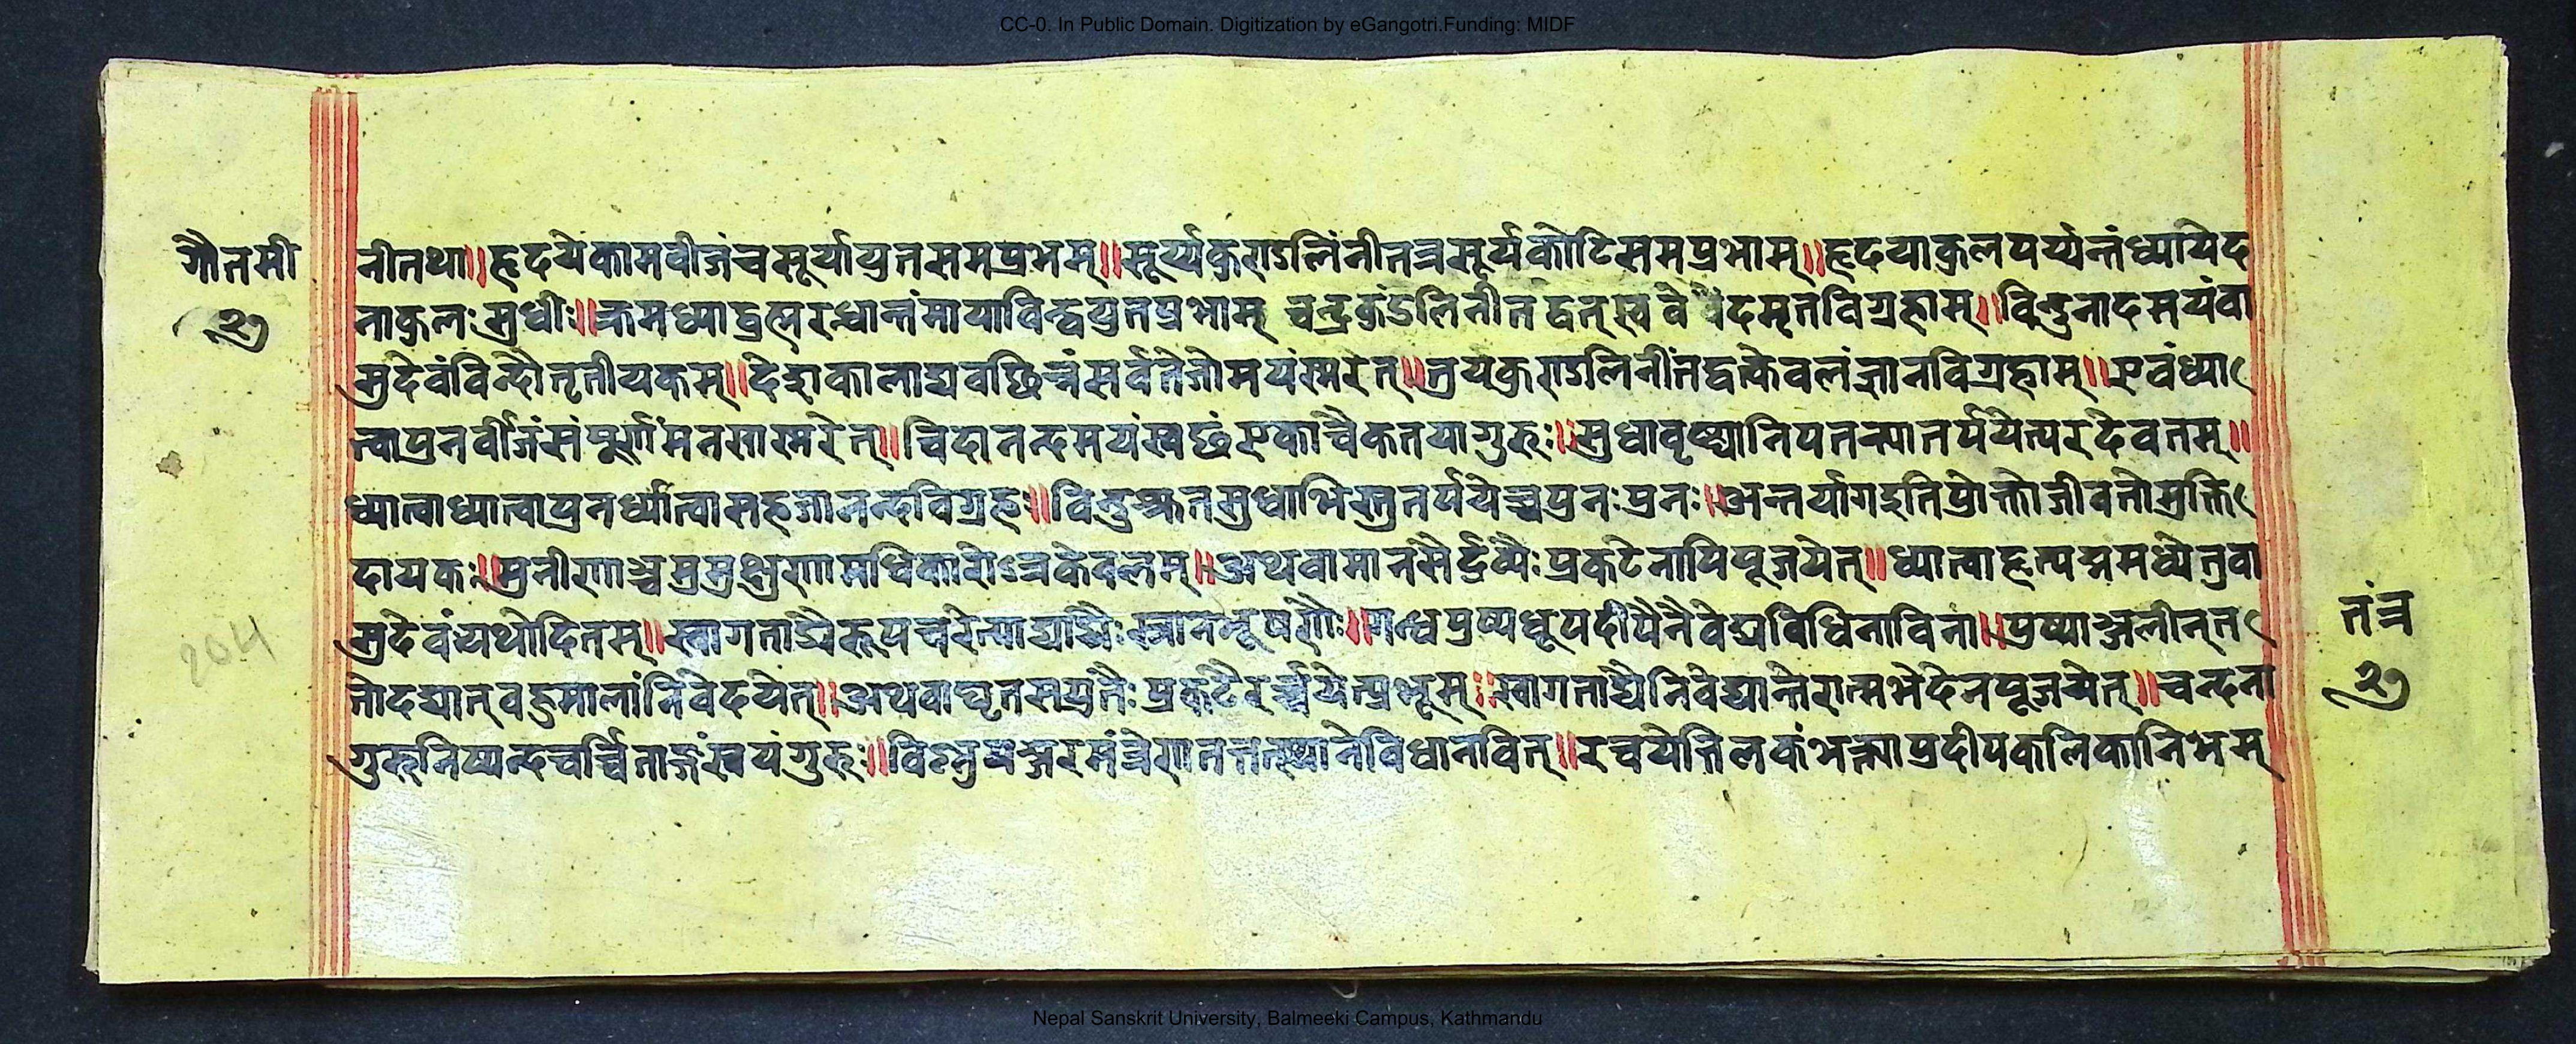 CC-0. In Public Domain. Digitization by eGangotri.Funding: MIDF
गौतमी
२७
नीतथा॥हृदयेकामवीजंचसूर्यायुतसमप्रभम्॥सूर्य्यकुण्डलिंनीतत्रसूर्यकोटिसमप्रभाम्॥हृदयाकुलपर्य्यन्तंध्यायेद
नाकुलःसुधीः॥क्रमध्याद्ब्रह्मरन्ध्रान्तंमायाविन्द्वयुतप्रभाम् चन्द्रकुंडलिनीतद्वत्स्व दमृतविग्रहाम्॥विन्दुनादमयंवा
सुदेवंविन्दौतृतीयकम्॥देशकालाद्यवछिन्नंसर्वतेजोमयंस्मरेत्॥त्रयकुण्डलिनींतद्वत्केवलंज्ञानविग्रहाम्॥एवंध्या
त्वापुनर्वीजंसंपूर्णंमनसास्मरेत्॥चिदानन्दमयंस्वछंएकाच्चैकतयागुरुः॥सुधावृष्ट्यानिपतन्त्यातर्पयेत्परदेवतम्॥
ध्यात्वाध्यात्वापुनर्ध्यात्वासहजानन्दविग्रहः॥विन्दुच्युतसुधाभिस्तुतर्पयेच्चपुनःपुनः॥अन्तर्यागइतिप्रोक्तोजीवतोमुक्ति
दायकः॥मुनीणाञ्चमुमुक्षुणामधिकारोऽत्रकेवलम्॥अथवामानसैर्द्रव्यैःप्रकटेनापिपूजयेत्॥ध्यात्वाहृत्पद्ममध्येतुवा
सुदेवंयथोदितम्॥स्वागताद्यैरूपचरेत्पाद्याद्यैःस्नानभूषणैः॥गन्धपुष्पधूपदीपैनैवेद्यविधिनाविना॥पुष्पाञ्जलीन्त
तोदद्यात्वहुमालांनिवेदयेत्॥अथवाघृतसयुतैःप्रकटैरर्च्चयेत्प्रभूम्॥स्वागताद्यैनिवेद्यान्तैरात्मभेदेनपूजयेत्॥चन्दना
गुरुनिष्यन्दचर्च्चिताङ्गंस्वयंगुरुः॥विष्णुपञ्जरमंत्रेणतत्तत्स्थानेविधानवित्॥रचयेत्तिलकंभक्त्याप्रदीपकलिकानिभम्
तंत्र
२७
204
Nepal Sanskrit University, Balmeeki Campus, Kathmandu